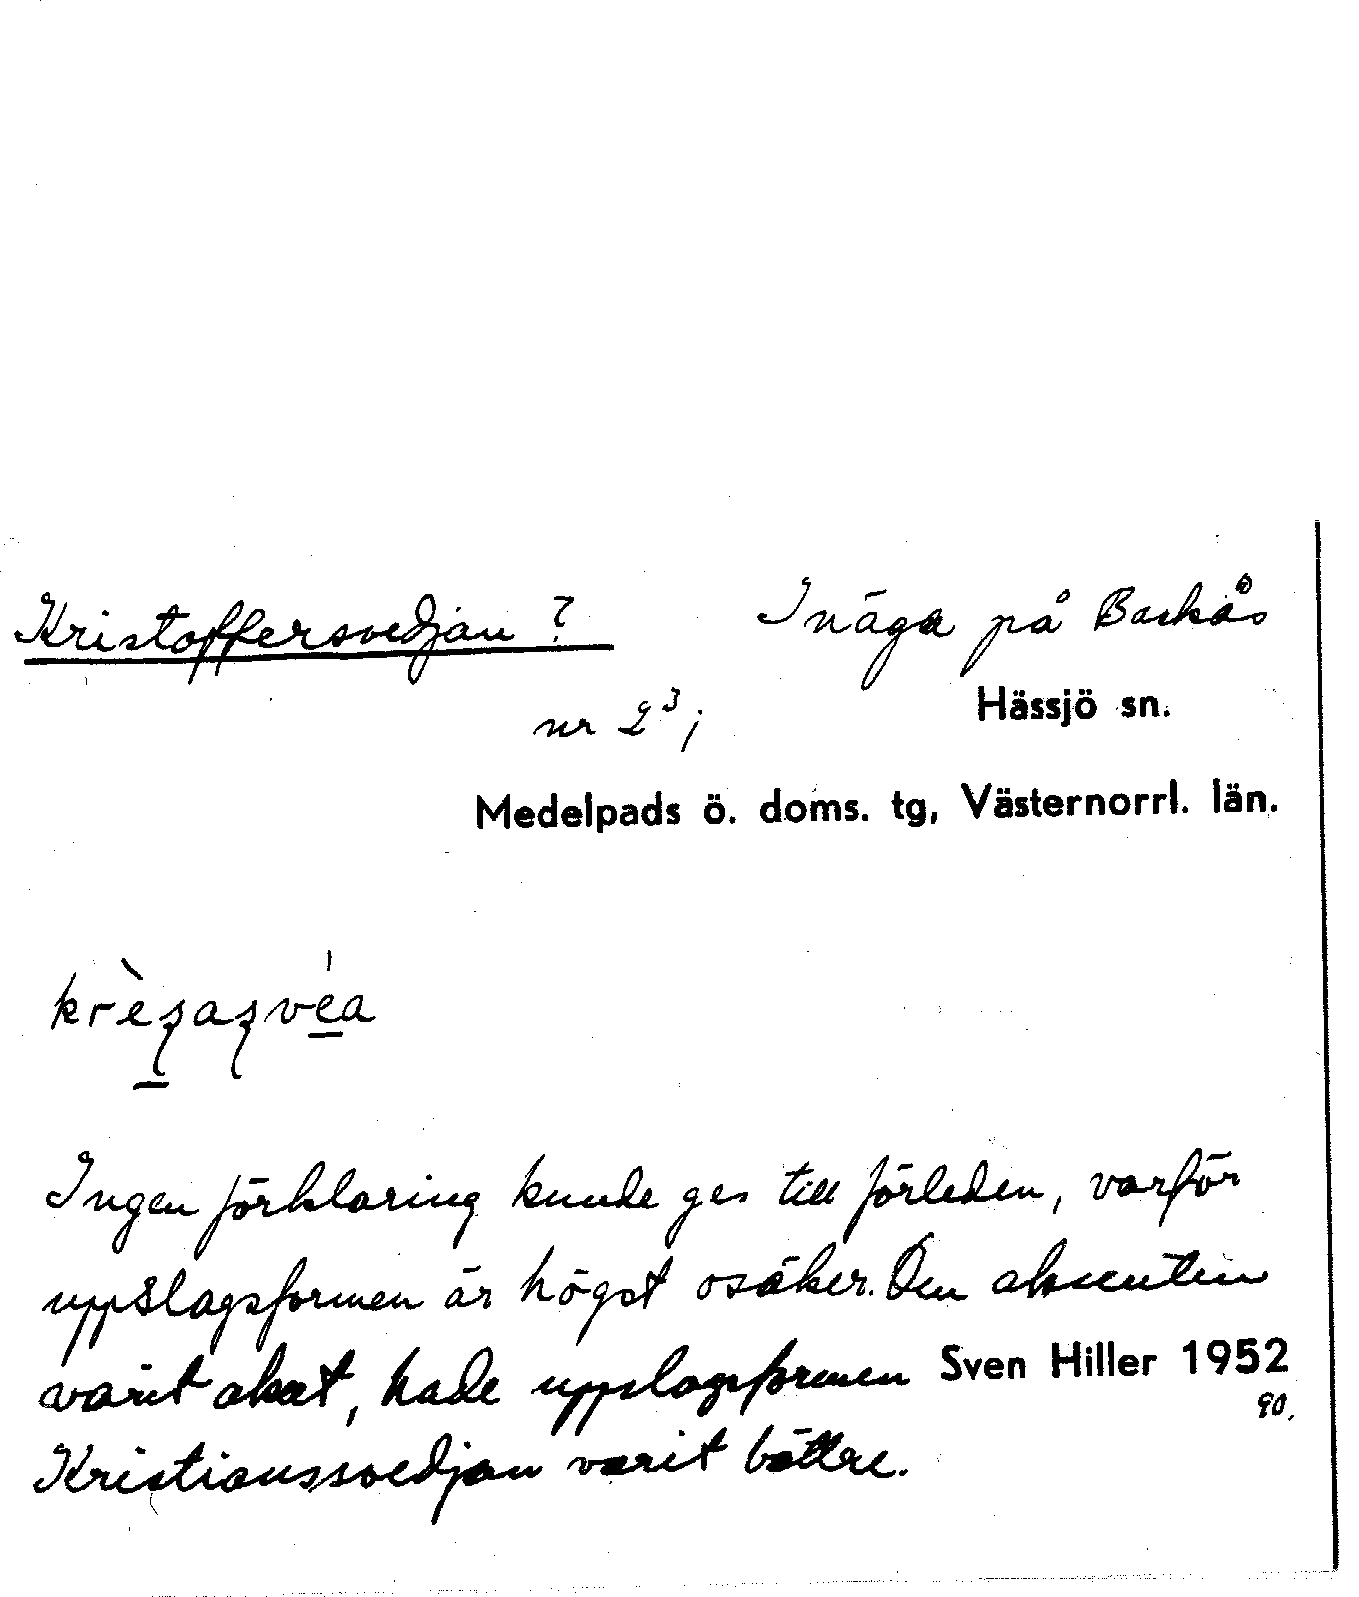 Kristoffersvedjan ? Inäga på Backås
nr 2³;
Hässjö sn.
Medelpads ö. doms. tg, Västernorrl. län.
Ingen förklaring kunde ges till förleden, varför
uppslagsformen är högst osäker. Den akcenten
varit akut, hade uppslagsformen
Sven Hiller 1952
90.
Kristianssvedjan varit bättre.